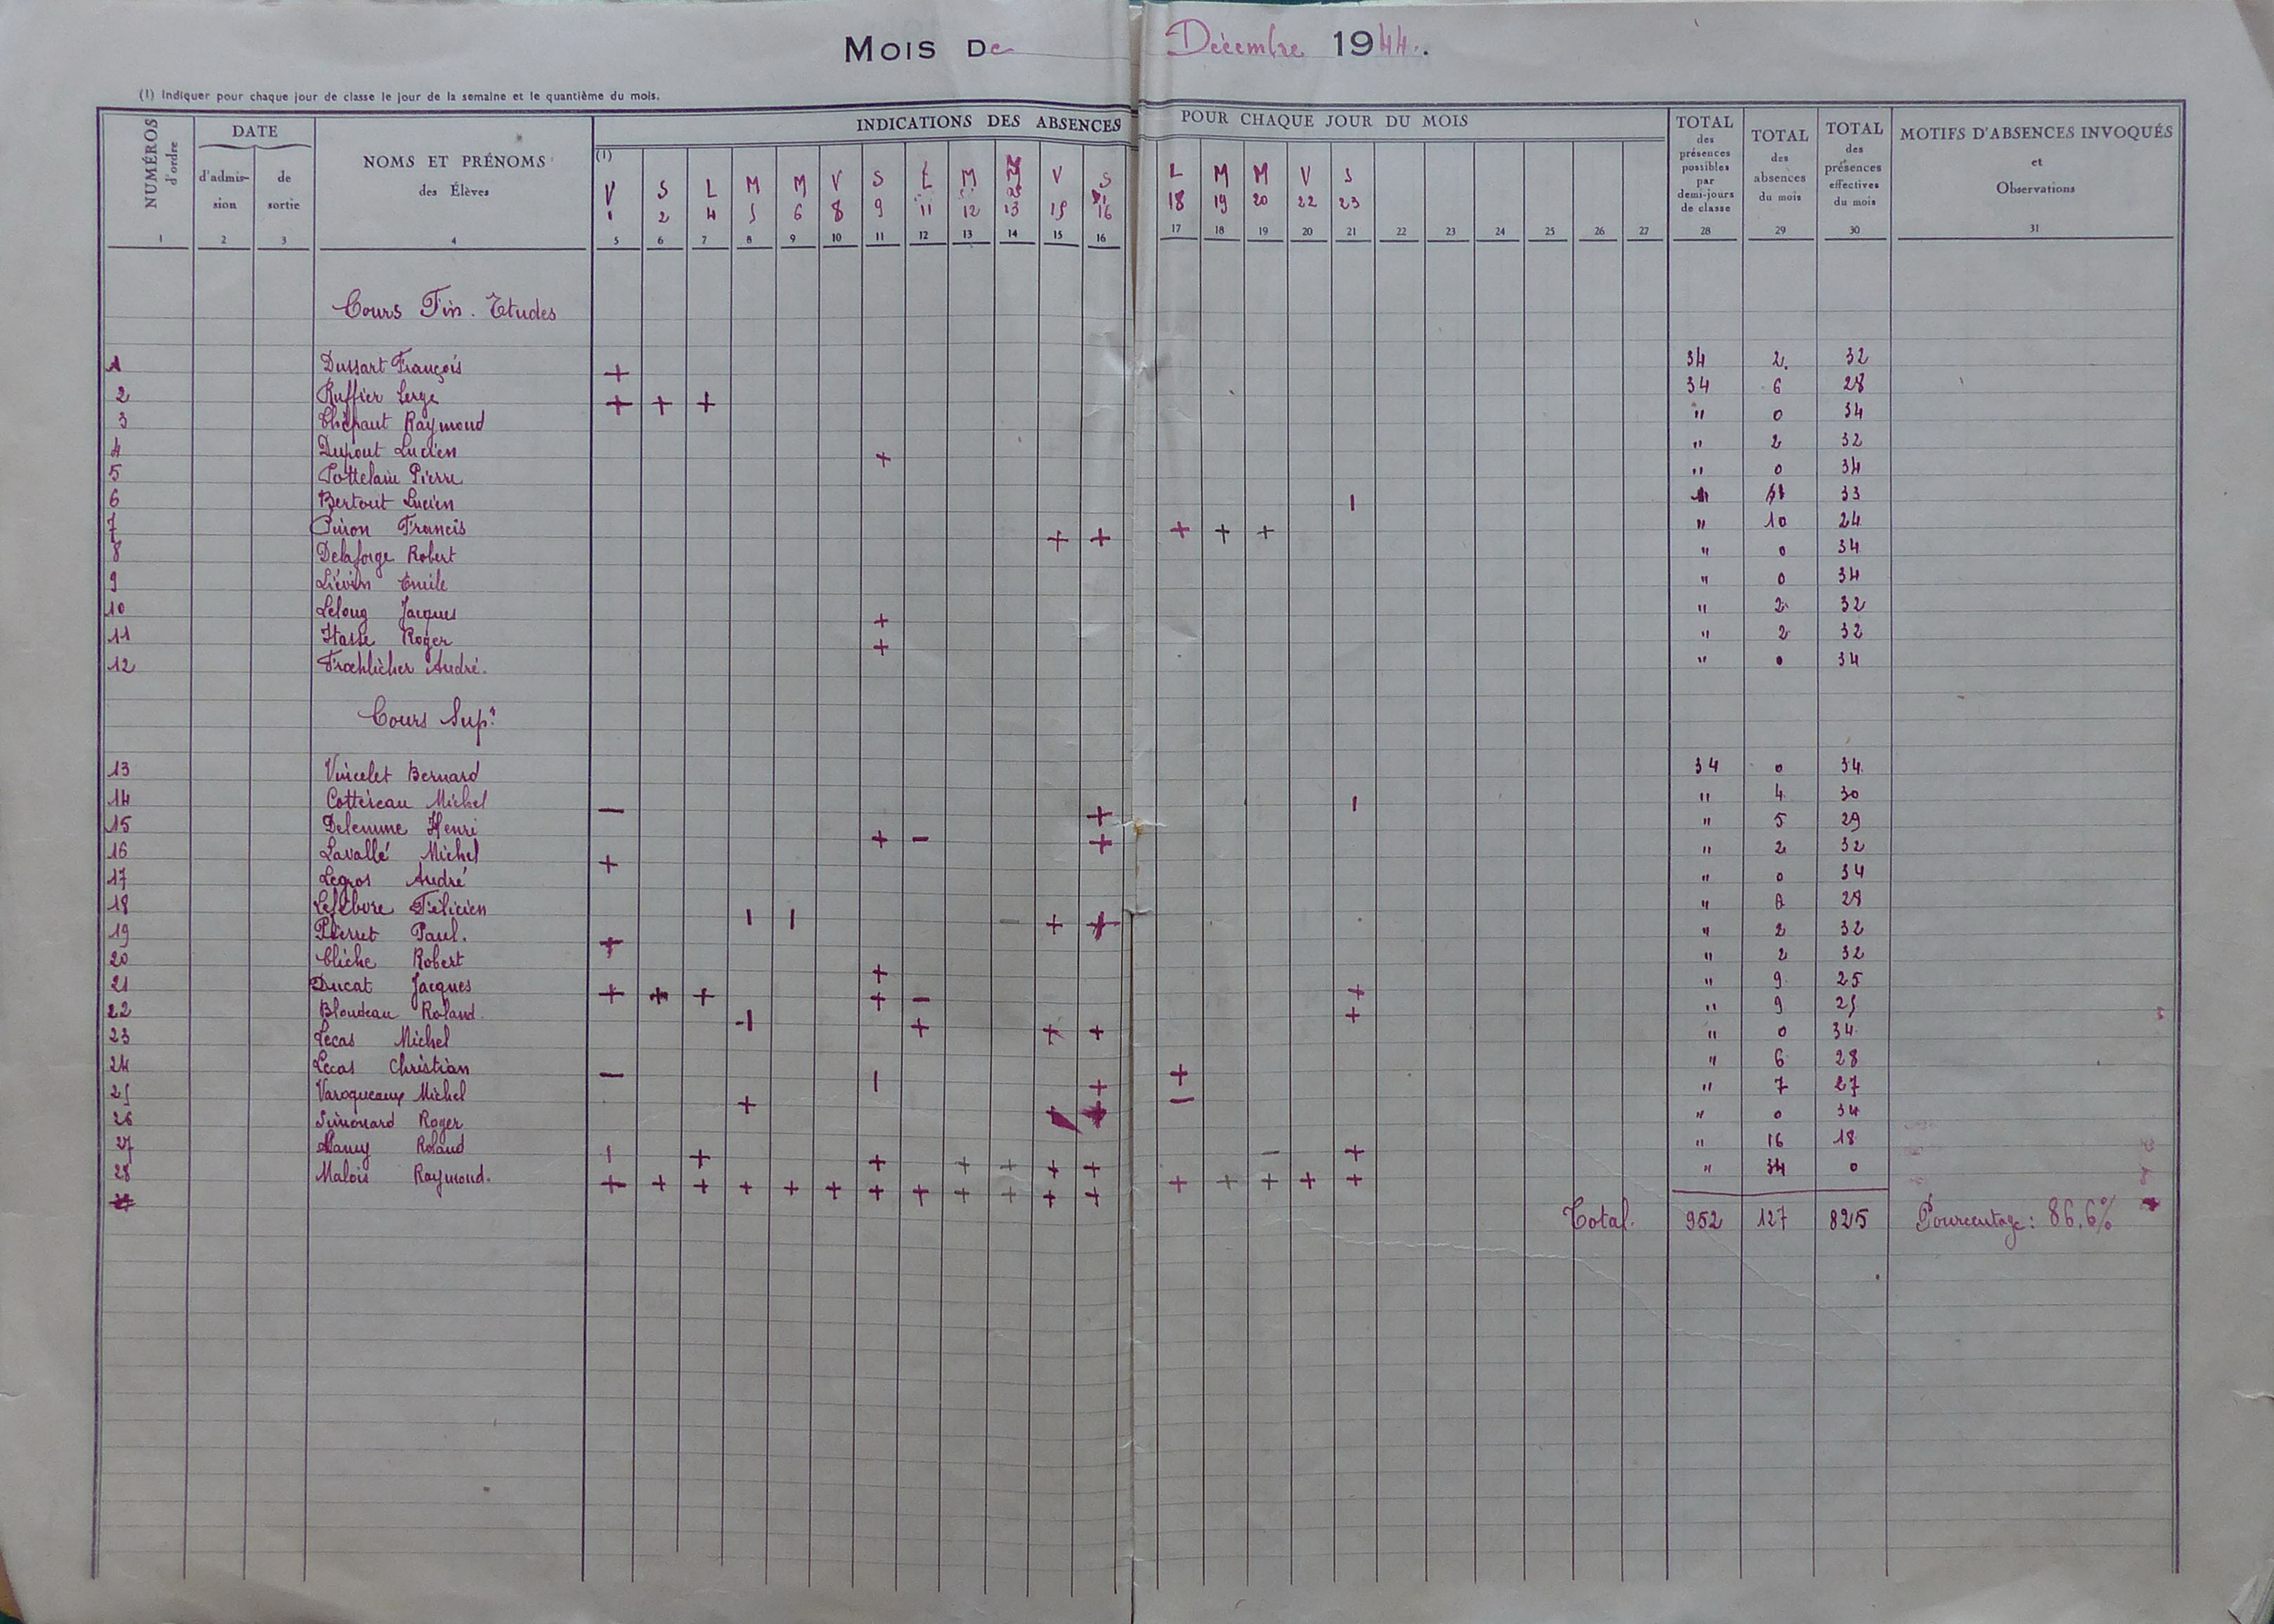 MOIS De Décembre 1944.
(1) Indiquer pour chaque jour de classe le jour de la semaine et le quantième du mois.
NUMÉROS d'ordre DATE d'admission de sortie NOMS ET PRÉNOMS des Élèves INDICATIONS DES ABSENCES POUR CHAQUE JOUR DU MOIS TOTAL des présences possibles par demi-jours de classe TOTAL des absences du mois TOTAL des présences effectives du mois MOTIFS D'ABSENCES INVOQUÉS et Observations
(1) V S L M M V S L M M V S L M M V S
1 2 4 5 6 8 9 11 12 13 15 16 18 19 20 22 23
1 2 3 4 5 6 7 8 9 10 11 12 13 14 15 16 17 18 19 20 21 22 23 24 25 26 27 28 29 30 31
Cours Fin. Etudes
1 Dussart François + 34 2 32
2 Ruffier Serge + + + 34 6 28
3 Raymond " 0 34
4 Dupont Lucien + " 2 32
5 Pottelain Pierre " 0 34
6 Bertout Lucien | " 1 33
7 Francis + + + + + " 10 24
8 Delaforge Robert " 0 34
9 Liévin Emile " 0 34
10 Lelong Jacques + " 2 32
11 Hasse Roger + " 2 32
12 Froehlicher André. " 0 34
Cours Supr
13 Vincelet Bernard 34 0 34
14 Cottereau Michel — + | " 4 30
15 Delemme Henri + — + " 5 29
16 Lavallé Michel + " 2 32
17 Legros André " 0 34
18 Lefebvre Félicien | | — + + " 28
19 Pierret Paul. + " 2 32
20 Cliche Robert + " 2 32
21 Ducat Jacques + + + + — + " 9 25
22 Blondeau Roland -| + + + + " 9 25
23 Lecas Michel " 0 34
24 Lecas Christian — | + + " 6 28
25 Varoqueaux Michel + + + — " 7 27
26 Simonard Roger " 0 34
27 Lamy Roland | + + + + + + — + " 16 18
28 Malois Raymond. + + + + + + + + + + + + + + + + + " 34 0
Total. 952 127 825 Pourcentage: 86.6%